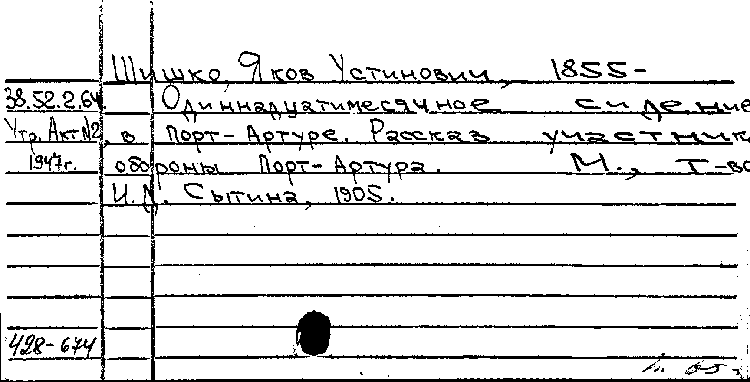 Шишко, Яков Устинович, 1855-
38.52.2.64 Одиннадцатимесячное сидение
Утр. Акт №2 в Порт-Артуре. Рассказ участник
1947г. обороны Порт-Артура. М., Т-во
И. Д. Сытина, 1905.
428-674